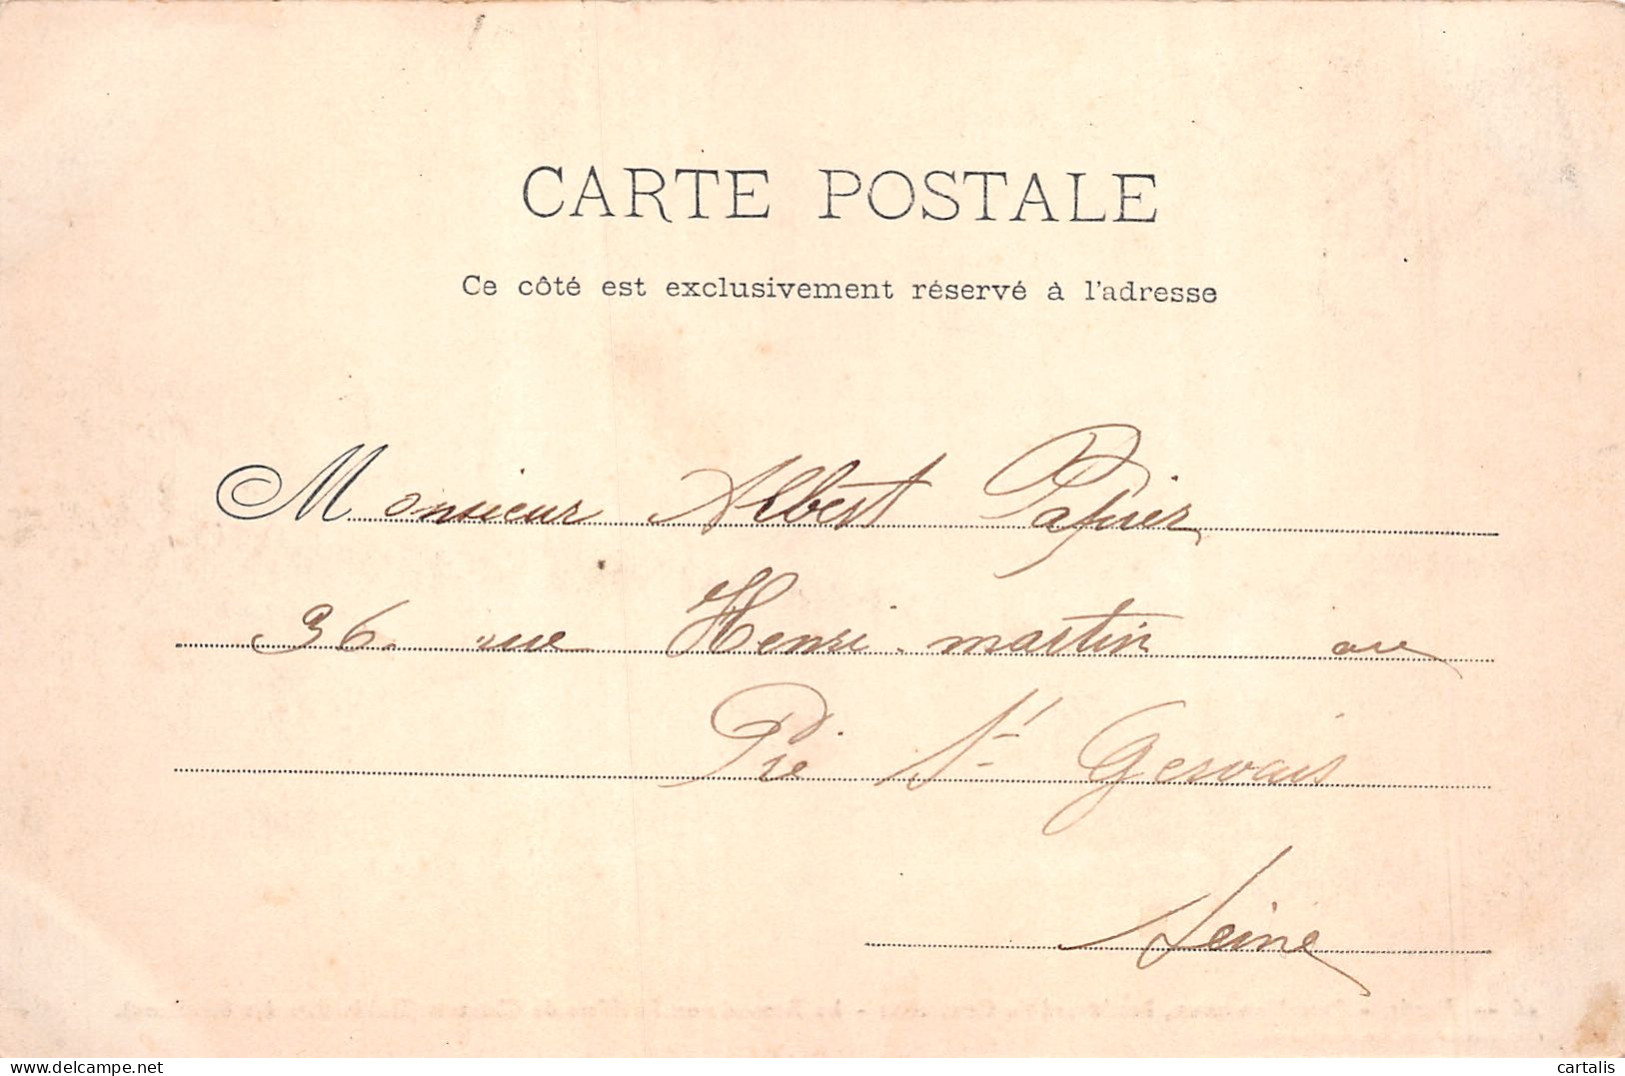 CARTE POSTALE
Ce côté est exclusivement réservé à l'adresse
Monsieur Albert Papier
36 rue Henri-martin au
Pré St Gervais
Seine
cartalis